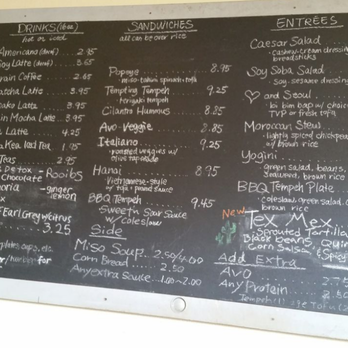 DRINKS (16oz)
hot or iced
Americano (decaf) 2.95
Soy Latte (decaf) 3.65
Grain Coffee 2.65
Matcha Latte 3.95
Latte 3.95
Mocha Latte 3.95
Latte 4.25
Iced Tea 1.95
Teas 2.95
Detox - Rooibs
Chocolate -
-ginger
lemon
Earl Grey w/citrus
3.25
SANDWICHES
all can be over rice
Papaya 8.95
miso-tahini spinach tofu
Tempting Tempeh 9.25
teriyaki tempeh
Cilantro Hummus 8.25
Avo Veggie 8.85
Italiano 9.25
roasted veggies w/
olive tapenade
Hanai 8.75
Vietnamese-style
w/ tofu and sweet sauce
BBQ Tempeh 9.45
Sweet n Sour Sauce
w/ coleslaw
Side
Miso Soup 2.50/4.00
Corn Bread 2.50
Any extra sauce 1.00-2.00
ENTRÉES
Caesar Salad
cashew-cream dressing
breadsticks
Soy Soba Salad
soy sesame dressing
and Seoul
bi bim bap w/
TVP or fresh tofu
Moroccan Stew
lightly spiced chickpeas
w/ brown rice
Yogini
green salad, beans,
seaweed, brown rice
BBQ Tempeh Plate
coleslaw, green salad,
brown rice
New
Tex Mex
Sprouted Tortilla
Black beans,
Corn Salsa
Spicy
Add Extra
Avo 2.75
Any Protein 2.50